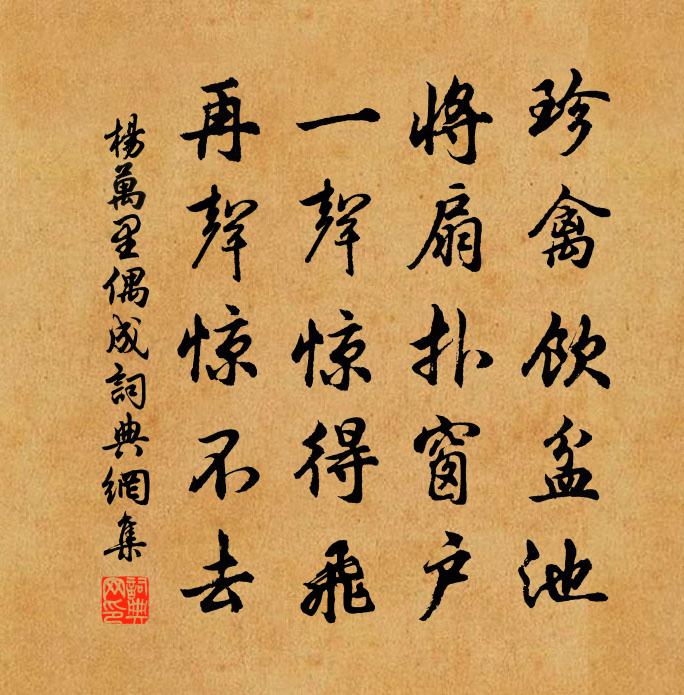 珍禽飲盆池
將扇扑窗户
一聲惊得飛
再聲惊不去
楊萬里偶成詞典網集
詞典網印